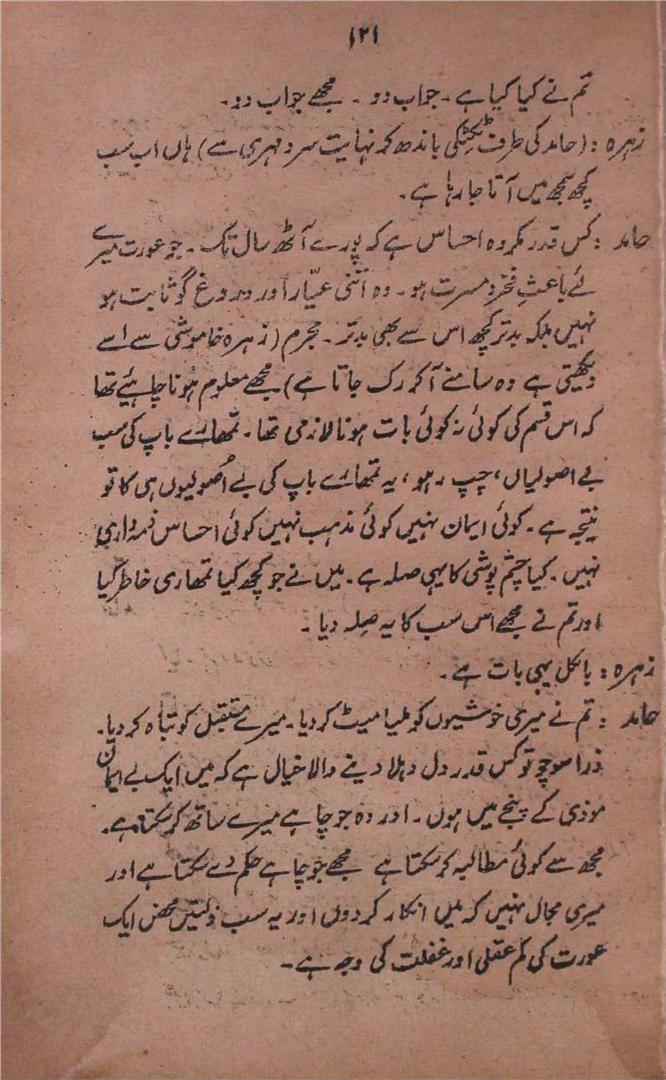 ۱۲۱
تم نے کیا کیا ہے ۔ جواب دو ۔ مجھے جواب دو ۔
زہرہ : (حامد کی طرف ٹکٹکی باندھ کر نہایت سرد مہری سے) ہاں اب سب
کچھ سمجھ میں آتا جا رہا ہے ۔
حامد : کس قدر مکروہ احساس ہے کہ پورے آٹھ سال تک ۔ جو عورت میرے
لئے باعثِ فخر و مسرت ہو ۔ وہ اتنی عیّار اور دروغ گو ثابت ہو
نہیں بلکہ بدتر کچھ اس سے بھی بدتر ۔ مجرم (زہرہ خاموشی سے اسے
دیکھتی ہے وہ سامنے آ کر رک جاتا ہے) مجھے معلوم ہونا چاہئیے تھا
کہ اس قسم کی کوئی نہ کوئی بات ہونا لازمی تھا ۔ تمھارے باپ کی سب
بے اصولیاں ، چپ رہو ، یہ تمھارے باپ کی بے اُصولیوں ہی کا تو
نتیجہ ہے ۔ کوئی ایمان نہیں کوئی مذہب نہیں کوئی احساس ذمہ داری
نہیں ۔ کیا چشم پوشی کا یہی صلہ ہے ۔ میں نے جو کچھ کیا تمھاری خاطر کیا
اور تم نے مجھے اس سب کا یہ صلہ دیا ۔
زہرہ : بالکل یہی بات ہے ۔
حامد : تم نے میری خوشیوں کو ملیا میٹ کر دیا ۔ میرے مستقبل کو تباہ کر دیا ۔
ذرا سوچو تو کس قدر دل دہلا دینے والا خیال ہے کہ میں ایک بے ایمان
موذی کے پنجے میں ہوں ۔ اور وہ جو چاہے میرے ساتھ کر سکتا ہے ۔
مجھ سے کوئی مطالبہ کر سکتا ہے مجھے جو چاہے حکم دے سکتا ہے اور
میری مجال نہیں کہ میں انکار کر دوں اور یہ سب ذلتیں محض ایک
عورت کی کم عقلی اور غفلت کی وجہ ہے ۔